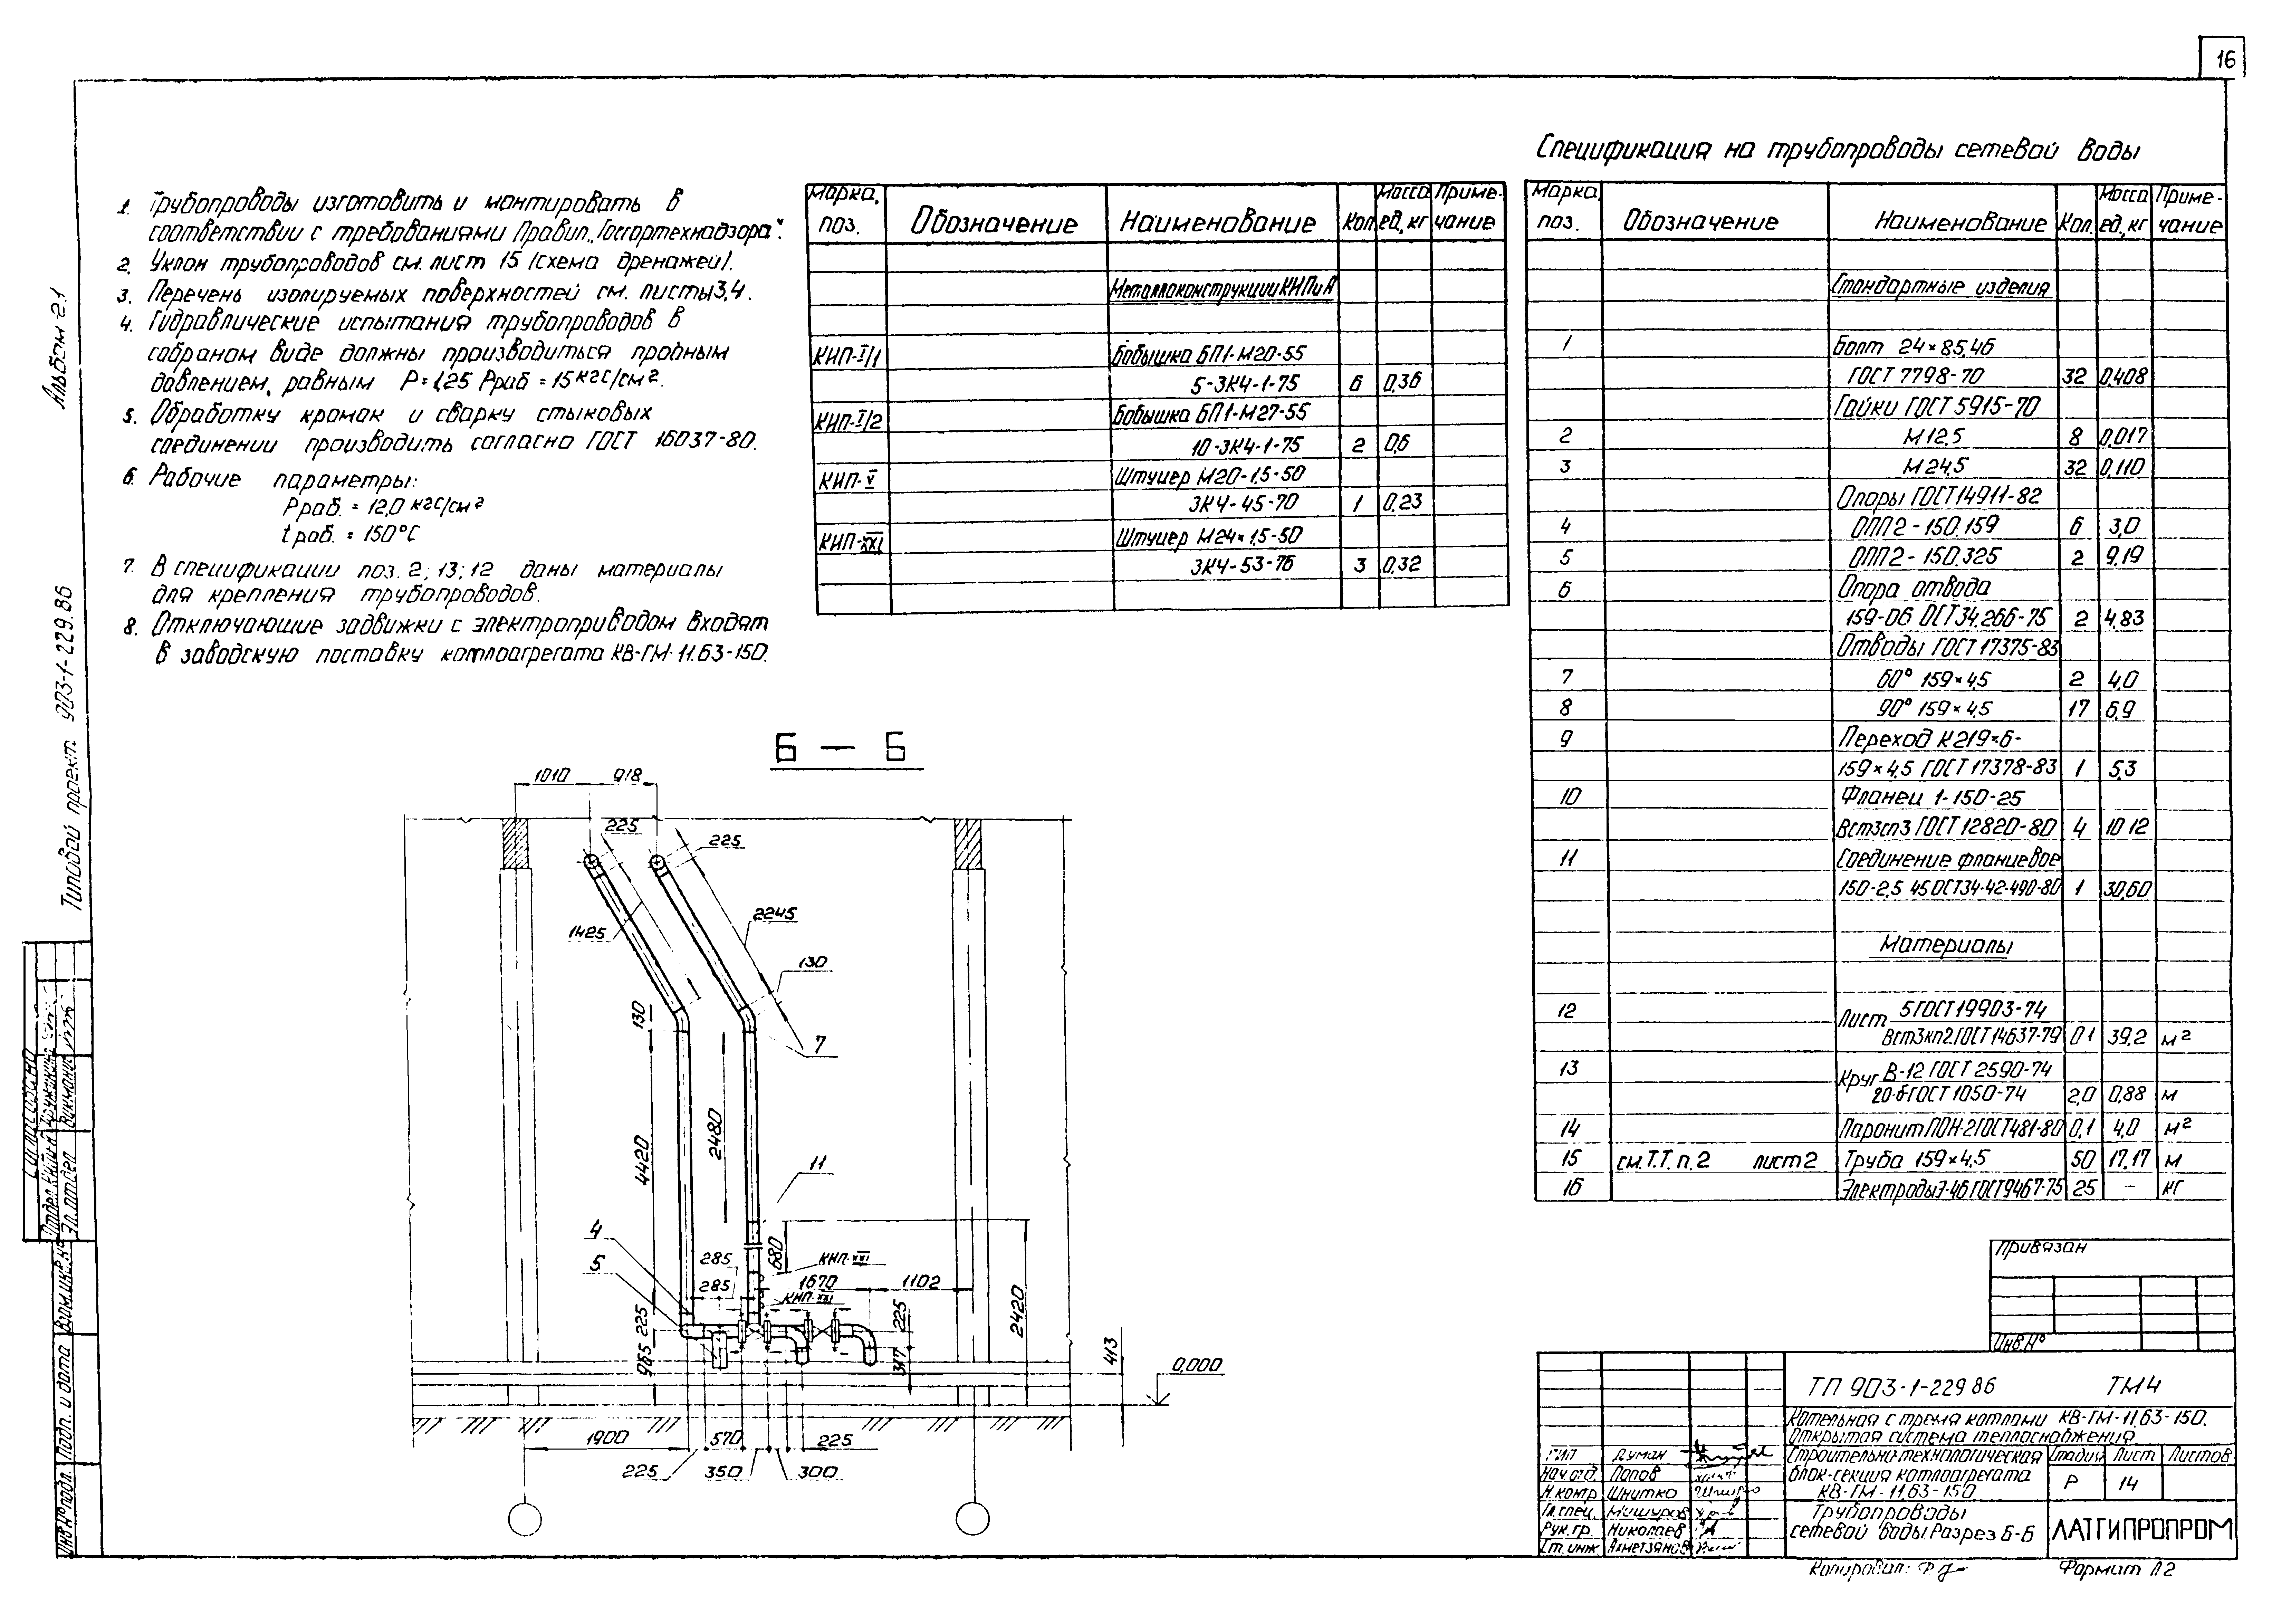 16
Альбом 2.1
Типовой проект 903-1-229.86
1. Трубопроводы изготовить и монтировать в
соответствии с требованиями Правил „Госгортехнадзора“.
2. Уклон трубопроводов см. лист 15 (схема дренажей).
3. Перечень изолируемых поверхностей см. листы 3,4.
4. Гидравлические испытания трубопроводов в
собраном виде должны производиться пробным
давлением, равным P=1,25 Pраб = 15 кгс/см²
5. Обработку кромок и сварку стыковых
соединении производить согласно ГОСТ 16037-80.
6. Рабочие параметры:
Pраб. = 12,0 кгс/см²
t раб. = 150°С
7. В спецификации поз. 2; 13; 12 даны материалы
для крепления трубопроводов.
8. Отключающие задвижки с электроприводом входят
в заводскую поставку котлоагрегата КВ-ГМ-11.63-150.
Марка, поз. Обозначение Наименование Кол. Масса ед., кг Приме-чание
Металлоконструкции КИПиА
КИП-I/1 Бобышка БП1-М20-55
5-ЗК4-1-75 6 0,36
КИП-I/2 Бобышка БП1-М27-55
10-ЗК4-1-75 2 0,6
КИП-V Штуцер М20-1,5-50
ЗК4-45-70 1 0,23
КИП-XXI Штуцер М24×1,5-50
ЗК4-53-76 3 0,32
Спецификация на трубопроводы сетевой воды
Марка, поз. Обозначение Наименование Кол. Масса ед., кг Приме-чание
Стандартные изделия
1 Болт 24×85.46
ГОСТ 7798-70 32 0,408
Гайки ГОСТ 5915-70
2 М12,5 8 0,017
3 М24,5 32 0,110
Опоры ГОСТ 14911-82
4 ОПП2-150.159 6 3,0
5 ОПП2-150.325 2 9,19
6 Опора отвода
159-06 ОСТ 34.266-75 2 4,83
Отводы ГОСТ 17375-83
7 60° 159×4,5 2 4,0
8 90° 159×4,5 17 6,9
9 Переход К219×6-
159×4,5 ГОСТ 17378-83 1 5,3
10 Фланец 1-150-25
Вст3сп3 ГОСТ 12820-80 4 10 12
11 Соединение фланцевое
150-2,5 45 ОСТ34-42-490-80 1 30,60
Материалы
12 Лист 5 ГОСТ 19903-74
Вст3кп2 ГОСТ 14637-79 0 1 39,2 м²
13 Круг В-12 ГОСТ 2590-74
20-б ГОСТ 1050-74 2,0 0,88 м
14 Паронит ПОН-2 ГОСТ 481-80 0,1 4,0 м²
15 см. Т.Т. п. 2 лист 2 Труба 159×4,5 50 17,17 м
16 Электроды Э-46 ГОСТ 9467-75 25 – кг
Б — Б
1010 918
225
225
2245
1425
130
130
7
2480
4420
11
4
5
285
285
680
КИП-XXI
1670 1102
КИП-XXI
225
225
2420
965
317
413
0.000
1900 570 225
225 350 300
Согласовано
Взам.инв.№
Подп. и дата
Инв.№подл.
Привязан
Инв.№
ТП 903-1-229 86 ТМ4
Котельная с тремя котлами КВ-ГМ-11,63-150.
Открытая система теплоснабжения
ГИП Думан
Нач.отд. Попов
Н.контр Шнитко
Гл.спец. Мишуров
Рук.гр. Николаев
Ст.инж Ахметзянов
Строительно-технологическая
блок-секция котлоагрегата
КВ-ГМ-11,63-150
Стадия Лист Листов
Р 14
Трубопроводы
сетевой воды Разрез Б-Б
ЛАТГИПРОПРОМ
Копировал:
Формат А2